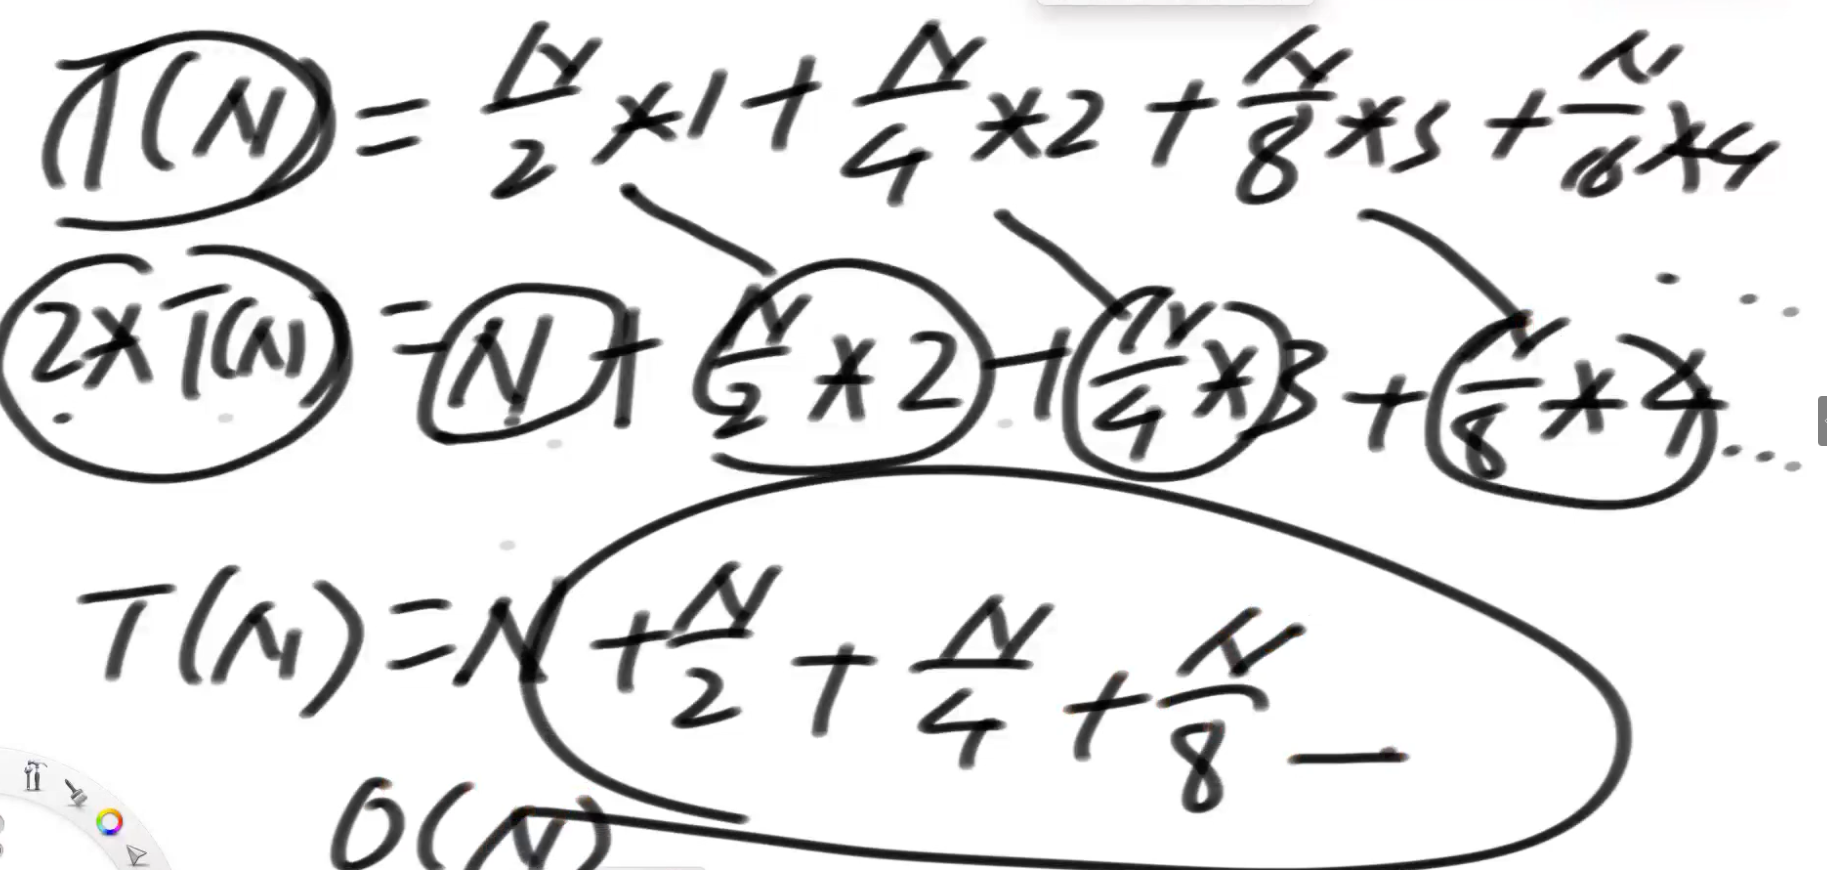 T(N) = N/2 × 1 + N/4 × 2 + N/8 × 3 + N/16 × 4
2 × T(N) = N + N/2 × 2 + N/4 × 3 + N/8 × 4 ...
T(N) = N + N/2 + N/4 + N/8 —
O(N)